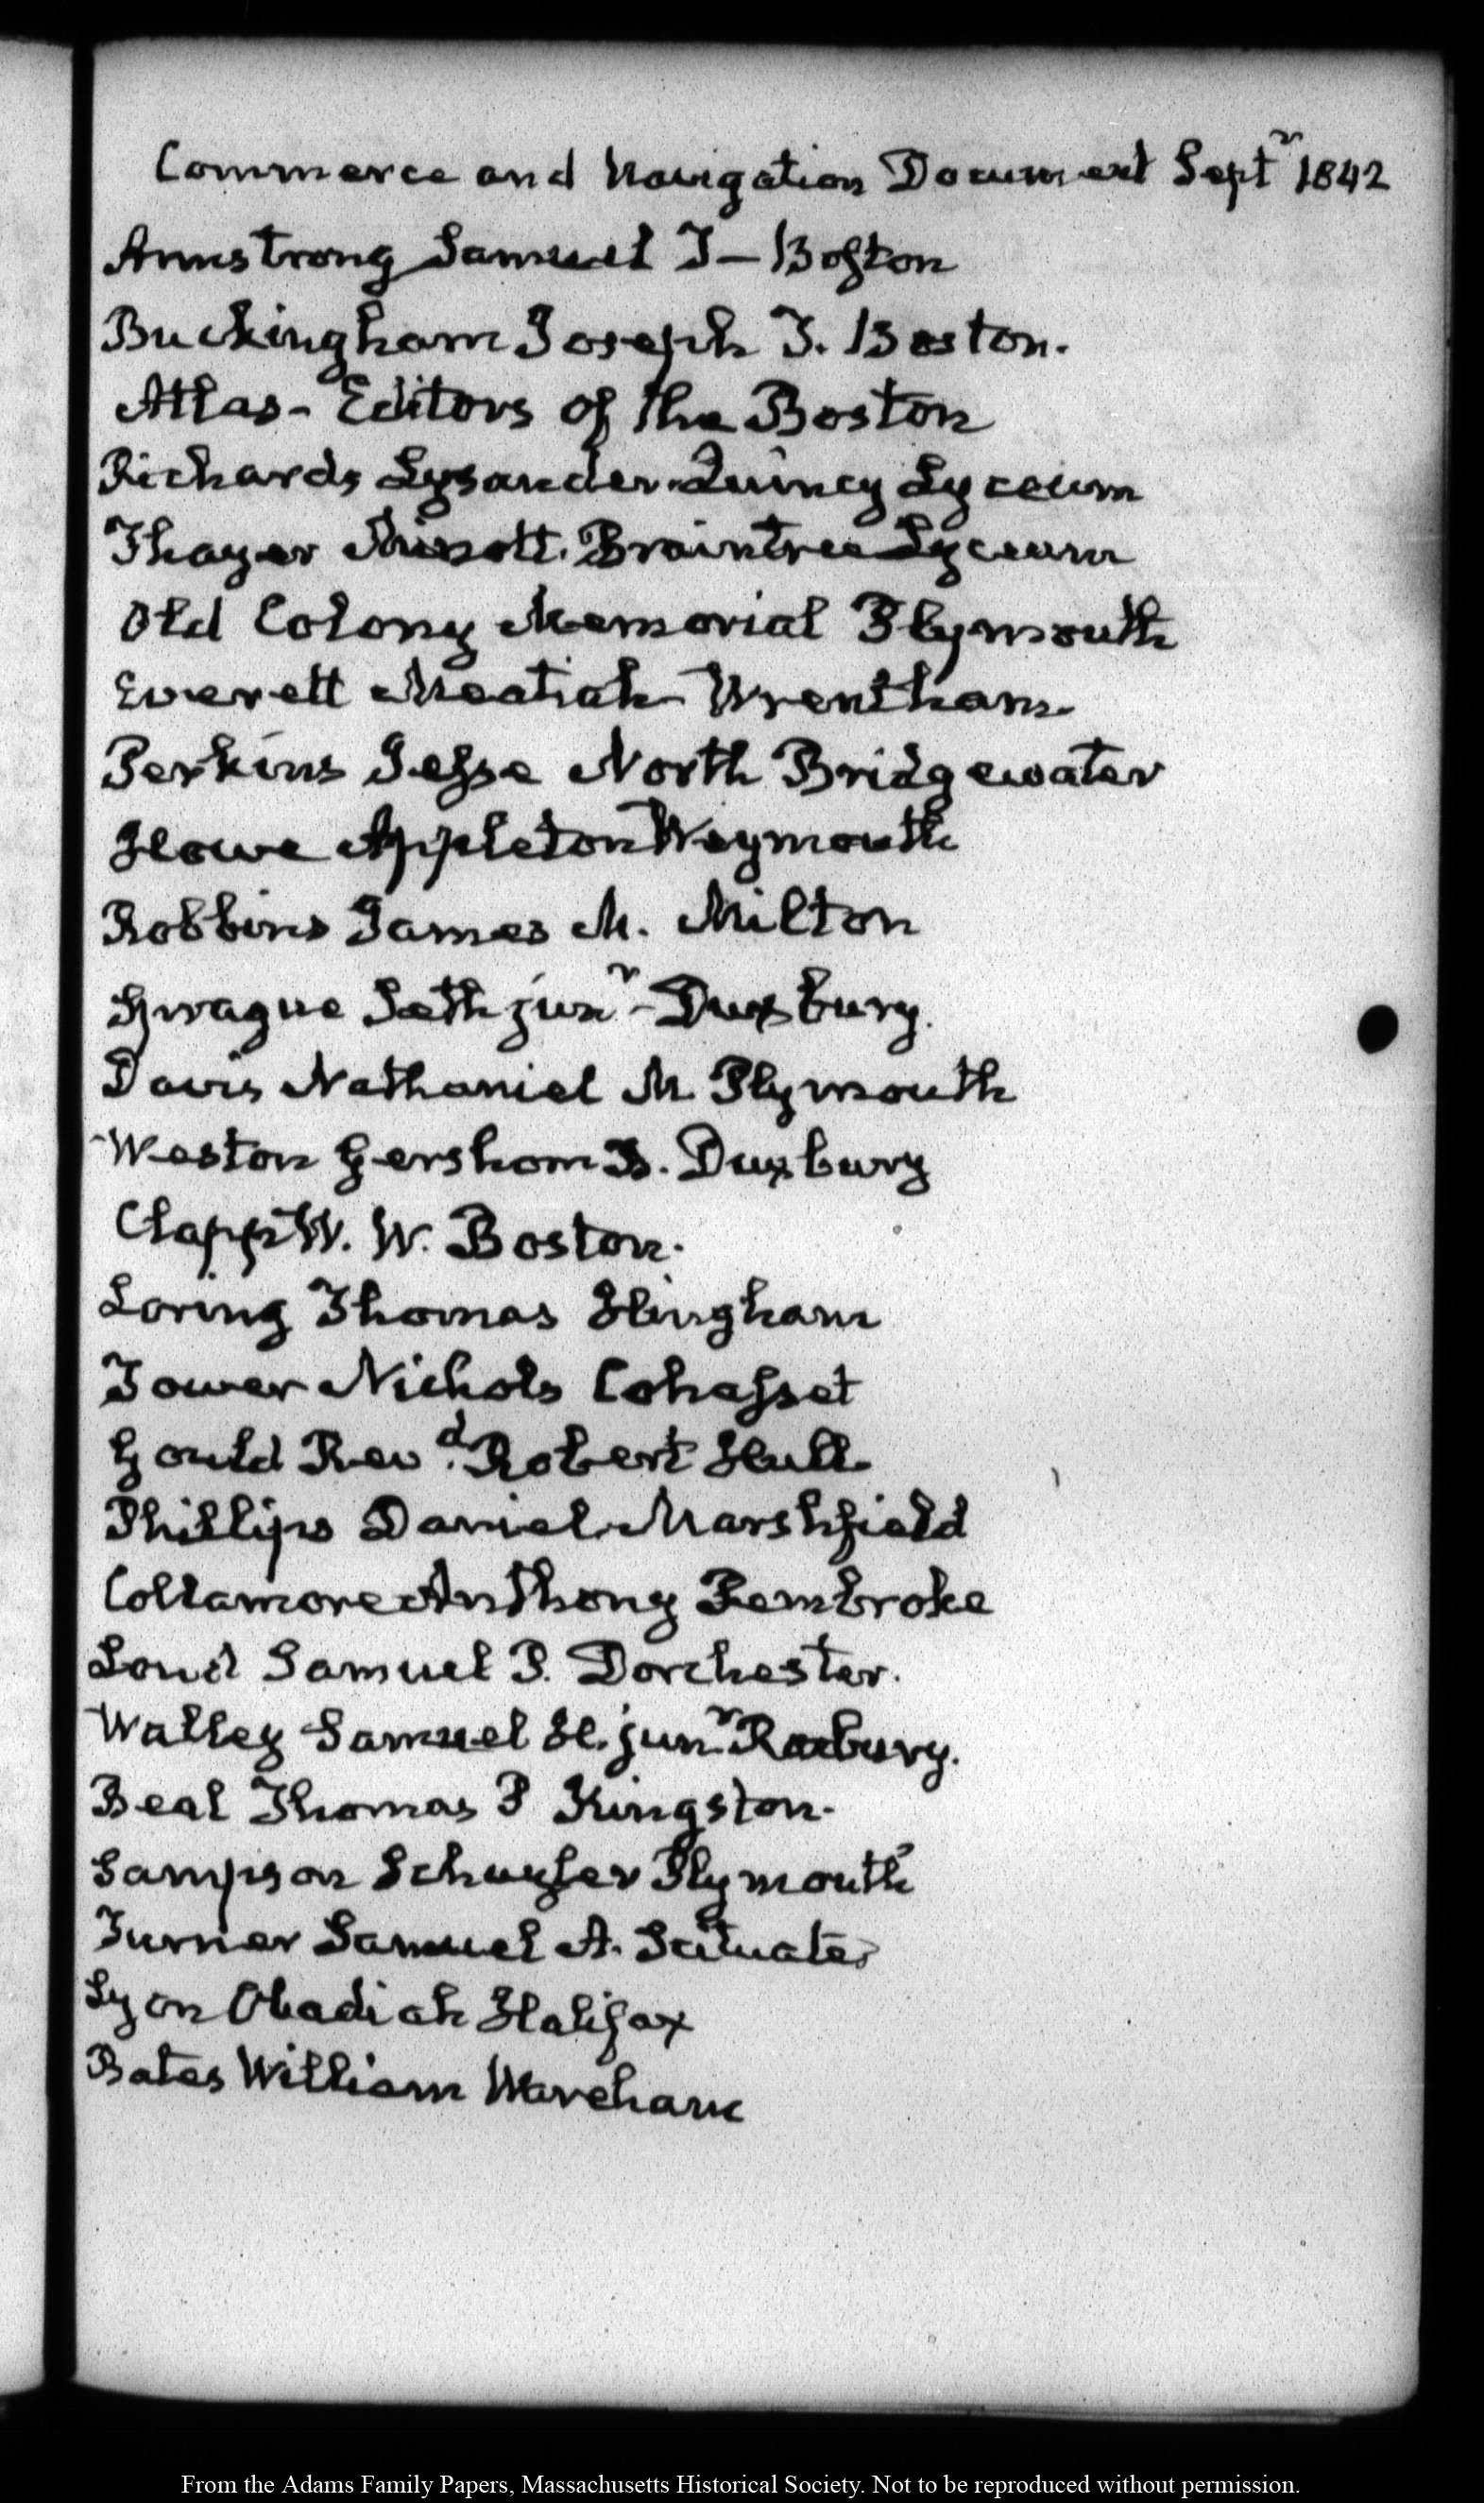 Commerce and Navigation Document Septr 1842
Armstrong Samuel T— Boston
Buckingham Joseph T. Boston.
Atlas - Editors of the Boston
Richards Lysander. Quincy Lyceum
Thayer Minott. Braintree Lyceum
Old Colony Memorial Plymouth
Everett Meatiah Wrentham.
Perkins Jesse North Bridgewater
Howe Appleton Weymouth
Robbins James M. Milton
Sprague Seth junr - Duxbury.
Davis Nathaniel M. Plymouth
Weston Gershom B. Duxbury
Clapp W. W. Boston.
Loring Thomas Hingham
Tower Nichols Cohasset
Gould Revd. Robert Hull
Phillips Daniel. Marshfield
Collamore Anthony Pembroke
Loud Samuel P. Dorchester.
Walley Samuel H. junr Roxbury.
Beal Thomas P Kingston.
Sampson Schuyler Plymouth
Turner Samuel A. Scituate
Lyon Obadiah Halifax
Bates William Wareham
From the Adams Family Papers, Massachusetts Historical Society. Not to be reproduced without permission.